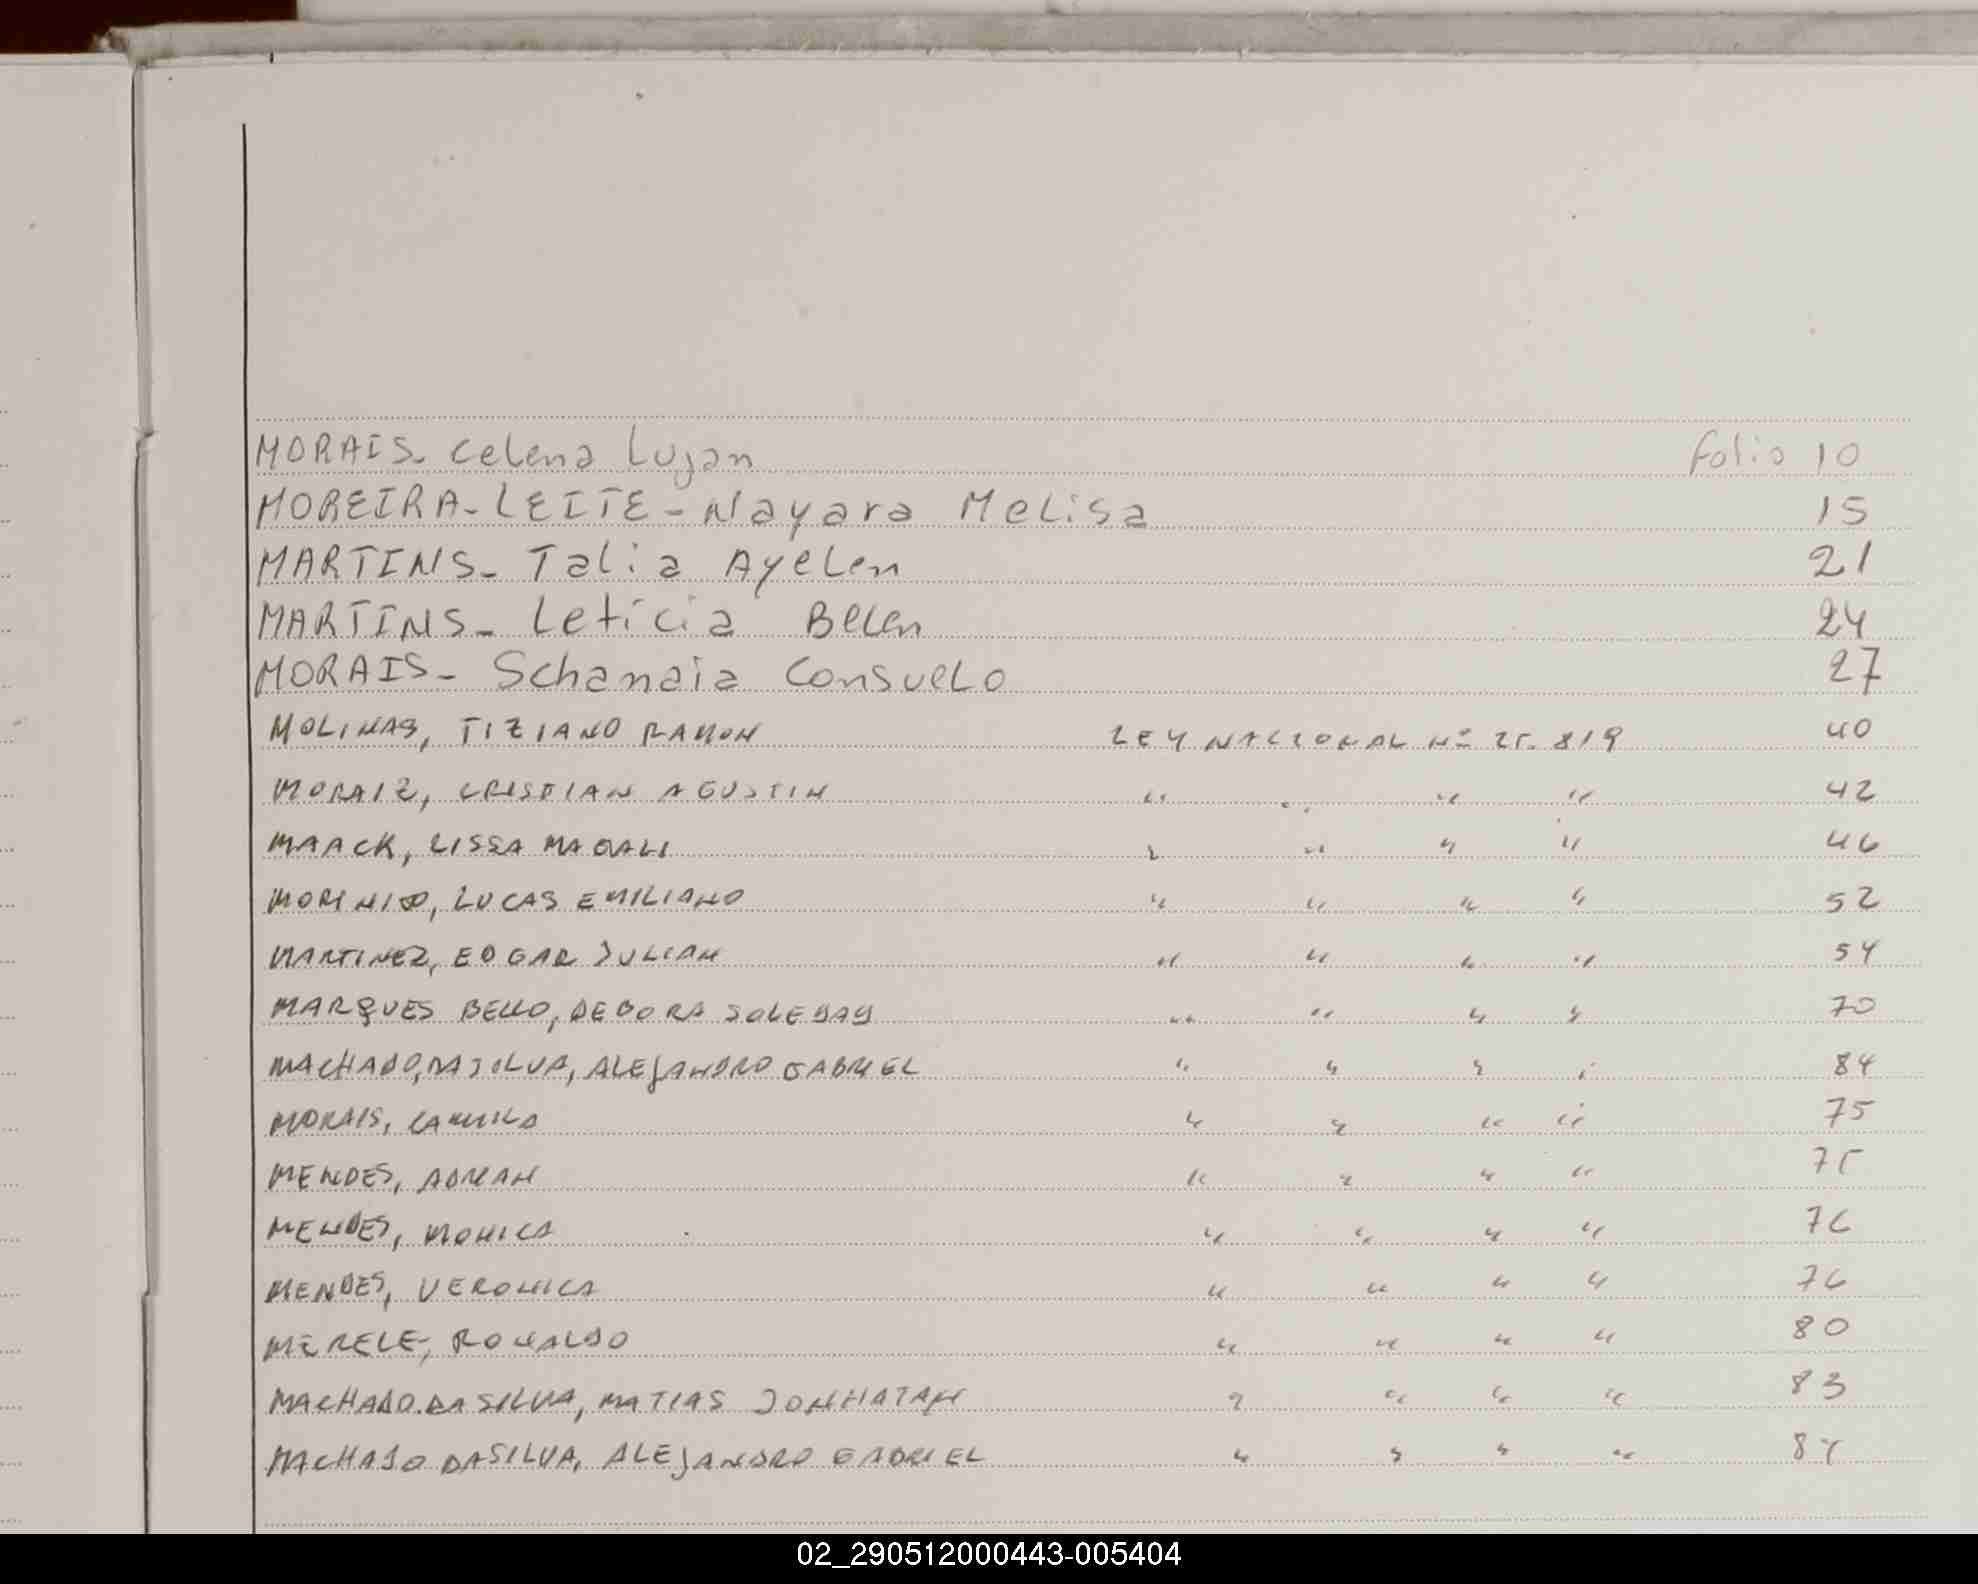 MORAIS- Celena Lujan folio 10
MOREIRA-LEITE-Nayara Melisa 15
MARTINS- Talia Ayelen 21
MARTINS- Leticia Belen 24
MORAIS- Schanaia Consuelo 27
MOLINAS, TIZIANO RAMON LEY NACIONAL Nº 25.819 40
MORAIZ, CRISTIAN AGUSTIN " " " " 42
MAACK, LISSA MAGALI " " " " 46
LUCAS EMILIANO " " " " 52
MARTINEZ, EDGAR JULIAN " " " " 54
MARQUES BELLO, DEBORA SOLEDAD " " " " 70
MACHADO, DA SILVA, ALEJANDRO GABRIEL " " " " 84
MORAIS, CAMILA " " " " 75
MENDES, ADRIAN " " " " 75
MENDES, MONICA " " " " 76
MENDES, VERONICA " " " " 76
MERELE, RONALDO " " " " 80
MACHADO DA SILVA, MATIAS JONHATAN " " " " 83
MACHADO DASILVA, ALEJANDRO GABRIEL " " " " 84
02_290512000443-005404